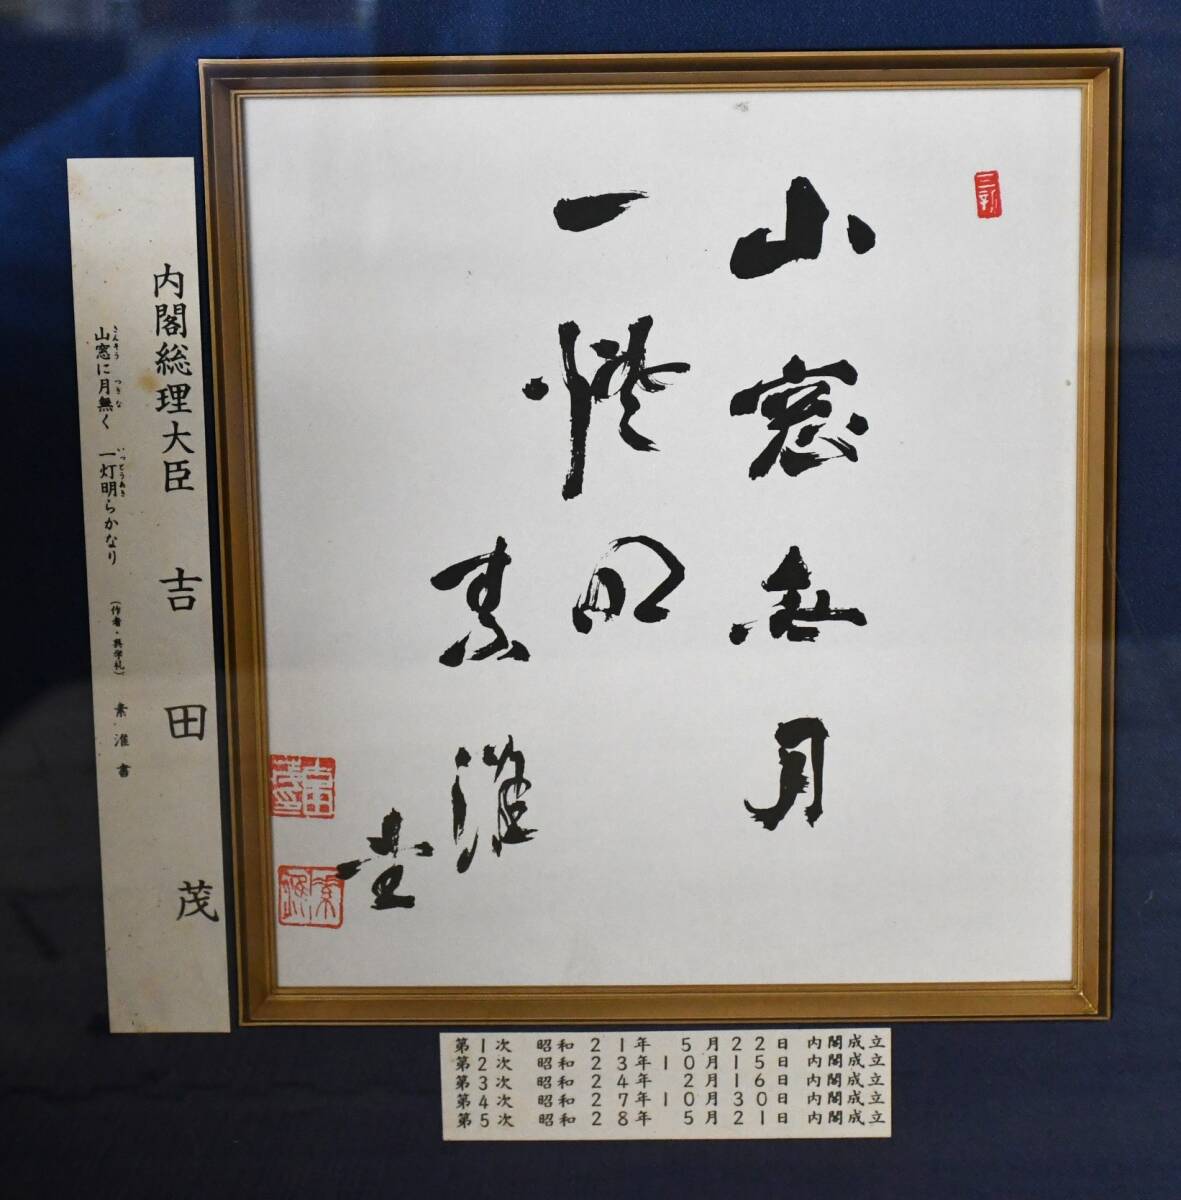 山窓無月
一燈明
素淮書
内閣総理大臣 吉田茂
山窓に月無く 一灯明らかなり (作者・呉学礼) 素淮書
さんそう つきな いっとうあき
第1次 昭和21年 5月22日 内閣成立
第2次 昭和23年10月15日 内閣成立
第3次 昭和24年 2月16日 内閣成立
第4次 昭和27年10月30日 内閣成立
第5次 昭和28年 5月21日 内閣成立